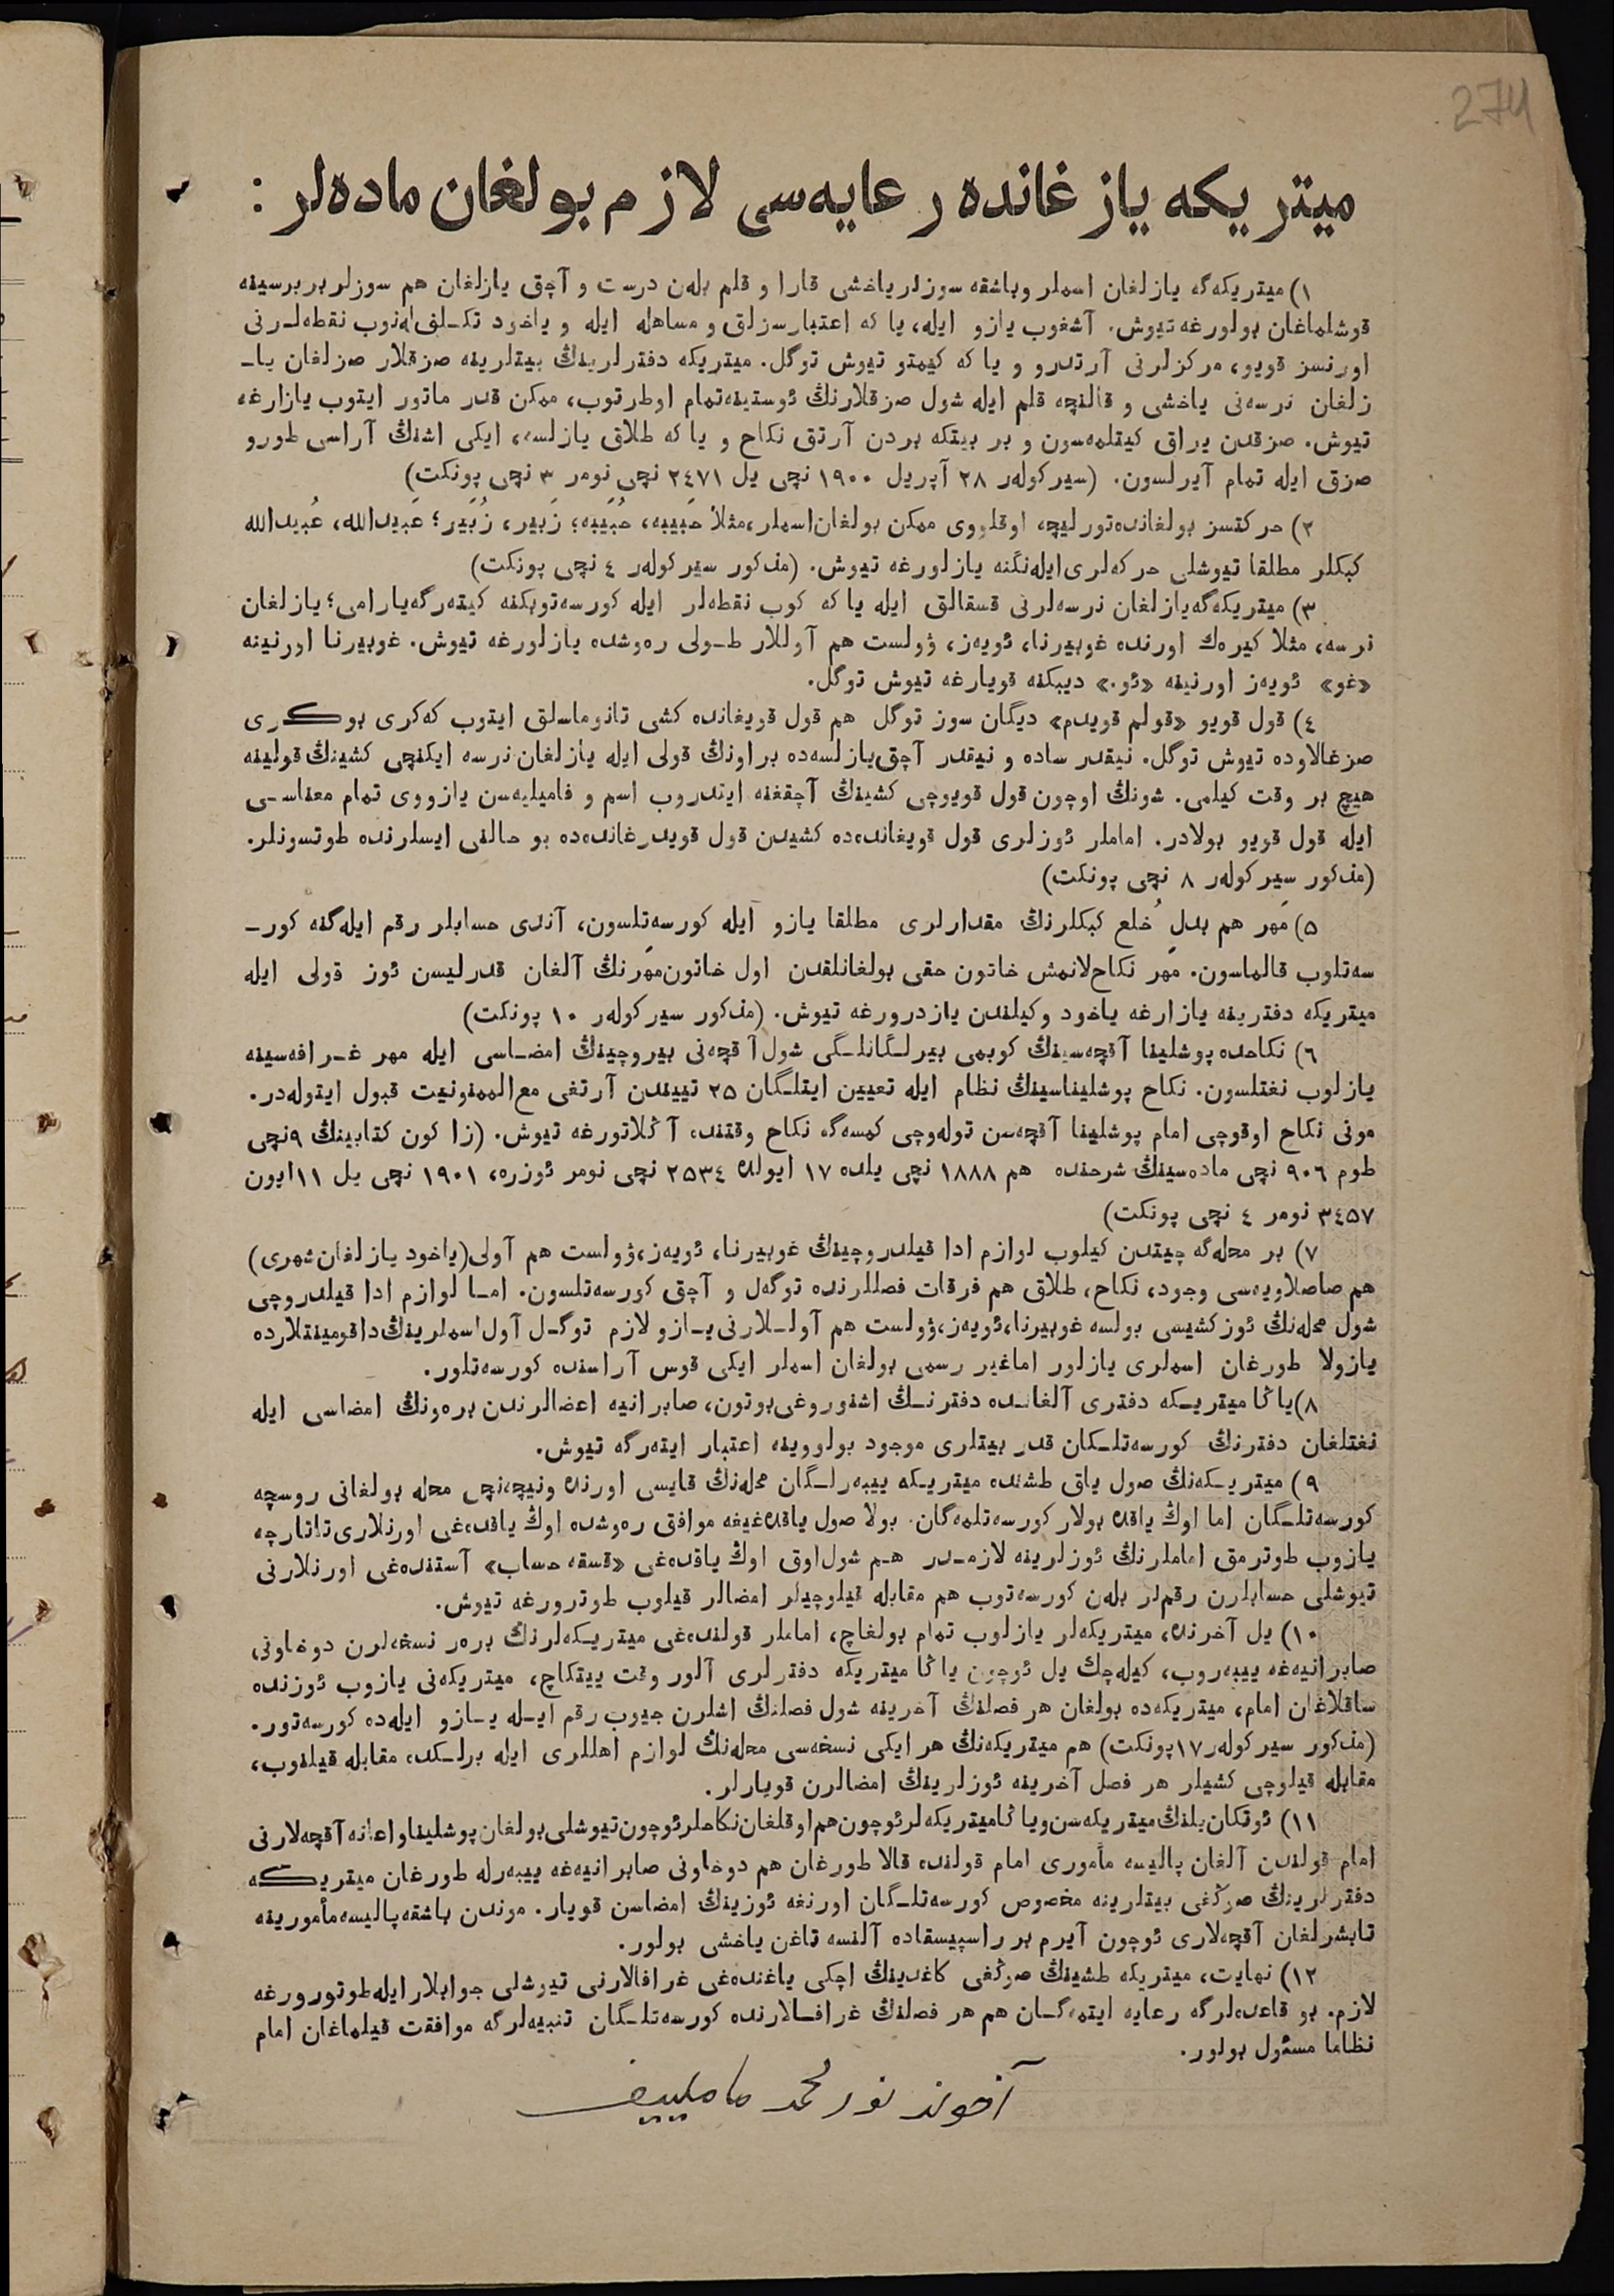 274
میتریکه یازغانده رعایه‌سی لازم بولغان ماده‌لر :
۱) میتریکه‌گه یازلغان اسملر وباشقه سوزلر یاخشی قارا و قلم بله‌ن درست و آچق یازلغان هم سوزلر بربرسینه
قوشلماغان بولورغه تیوش. آشغوب یازو ایله، یا که اعتبارسزلق و مساهله ایله و یاخود تکـلف‌له‌نوب نقطه‌لـرنی
اورنسز قویو، مرکزلرنی آرتدرو و یا که کیمتو تیوش توگل. میتریکه دفترلرینڭ بیتلرینه صزقلار صزلغان یاـ
زلغان نرسه‌نی یاخشی و قالنچه قلم ایله شول صزقلارنڭ ئوستینه‌تمام اوطرتوب، ممکن قدر ماتور ایتوب یازارغه
تیوش. صزقدن یراق کیتلمه‌سون و بر بیتکه بردن آرتق نکاح و یا که طلاق یازلسه، ایکی اشنڭ آراسی طورو
صزق ایله تمام آیرلسون. (سیرکوله‌ر ۲۸ آپریل ۱۹۰۰ نچی یل ۲٤۷۱ نچی نومر ۳ نچی پونکت)
۲) حرکتسز بولغانده‌تورلیچه اوقلووی ممکن بولغان‌اسملر،مثلاً حَبیبه، حُبَیبه؛ زَبیر، زُبَیر؛ عَبیدالله، عُبیدالله
کبکلر مطلقا تیوشلی حرکه‌لری‌ایله‌نگنه یازلورغه تیوش. (مذکور سیرکوله‌ر ٤ نچی پونکت)
۳) میتریکه‌گه‌یازلغان نرسه‌لرنی قسقالق ایله یا که کوب نقطه‌لر ایله کورسه‌توبکنه کیته‌رگه‌یارامی؛ یازلغان
نرسه، مثلا کیره‌ك اورنده غوبیرنا، ئویه‌ز، ۋولست هم آوللار طـولی ره‌وشده یازلورغه تیوش. غوبیرنا اورنینه
«غو» ئویه‌ز اورنینه «ئو.» دیبکنه قویارغه تیوش توگل.
٤) قول قویو «قولم قویدم» دیگان سوز توگل هم قول قویغانده کشی تانوماسلق ایتوب که‌کری بوکری
صزغالاوده تیوش توگل. نیقدر ساده و نیقدر آچق‌یازلسه‌ده براونڭ قولی ایله یازلغان نرسه ایکنچی کشینڭ قولینه
هیچ بر وقت کیلمی. شونڭ اوچون قول قویوچی کشینڭ آچقغنه ایتدروب اسم و فامیلیه‌سن یازووی تمام معناسـی
ایله قول قویو بولادر. اماملر ئوزلری قول قویغانده‌ده کشیدن قول قویدرغانده‌ده بو حالنی ایسلرنده طوتسونلر.
(مذکور سیرکوله‌ر ۸ نچی پونکت)
۵) مَهر هم بدلِ خُلع کبکلرنڭ مقدارلری مطلقا یازو ایله کورسه‌تلسون، آندی حسابلر رقم ایله‌گنه کورـ
سه‌تلوب قالماسون. مَهر نکاح‌لانمش خاتون حقی بولغانلقدن اول خاتون‌مَهرنڭ آلغان قدرلیسن ئوز قولی ایله
میتریکه دفترینه یازارغه یاخود وکیلندن یازدرورغه تیوش. (مذکور سیرکوله‌ر ۱۰ پونکت)
٦) نکاحده پوشلینا آقچه‌سینڭ کوبمی بیرلـگانلـگی شول آقچه‌نی بیروچینڭ امضـاسی ایله مهر غـرافه‌سینه
یازلوب نغتلسون. نکاح پوشلیناسینڭ نظام ایله تعیین ایتلـگان ۲۵ تییندن آرتغی مع‌الممنونیت قبول ایتوله‌در.
مونی نکاح اوقوچی امام پوشلینا آقچه‌سن توله‌وچی کمسه‌گه نکاح وقتنده آڭلاتورغه تیوش. (زاکون کتابینڭ ۹نچی
طوم ۹۰٦ نچی ماده‌سینڭ شرحنده هم ۱۸۸۸ نچی یلده ۱۷ ایولده ۲۵۳٤ نچی نومر ئوزره، ۱۹۰۱ نچی یل ۱۱ایون
۳٤۵۷ نومر ٤ نچی پونکت)
۷) بر محله‌گه چیتدن کیلوب لوازم ادا قیلدروچینڭ غوبیرنا، ئویه‌ز،ۋولست هم آولی(یاخود یازلغان‌شهری)
هم صاصلاویه‌سی وجود، نکاح، طلاق هم فرقات فصللرنده توگه‌ل و آچق کورسه‌تلسون. امـا لوازم ادا قیلدروچی
شول محله‌نڭ ئوز کشیسی بولسه غوبیرنا،ئویه‌ز،ۋولست هم آولـلارنی یـازو لازم توگـل آول‌اسملرینڭ‌داقومینتلارده
یازولا طورغان اسملری یازلور اماغیر رسمی بولغان اسملر ایکی قوس آراسنده کورسه‌تلور.
۸)یاڭا میتریـکه دفتری آلغانـده دفترنـڭ اشنوروغی‌بوتون، صابرانیه اعضالرندن بره‌ونڭ امضاسی ایله
نغتلغان دفترنڭ کورسه‌تلـکان قدر بیتلری موجود بولووینه اعتبار ایته‌رگه تیوش.
۹) میتریـکه‌نڭ صول یاق طشنده میتریـکه ییبه‌رلـگان محله‌نڭ قایسی اورنده ونیچه‌نچی محله بولغانی روسچه
کورسه‌تلـگان اما اوڭ یاقده بولار کورسه‌تلمه‌گان. بولا صول یاقده‌غیغه موافق ره‌وشده اوڭ یاقده‌غی اورنلاری‌تاتارچه
یازوب طوترمق اماملرنڭ ئوزلرینه لازمـدر هـم شول‌اوق اوڭ یاقده‌غی «قسقه حساب» آستنده‌غی اورنلارنی
تیوشلی حسابلرن رقملر بله‌ن کورسه‌توب هم مقابله قیلوچیلر امضالر قیلوب طوترورغه تیوش.
۱۰) یل آخرنده، میتریکه‌لر یازلوب تمام بولغاچ، اماملر قولنده‌غی میتریـکه‌لرنڭ بره‌ر نسخه‌لرن دوخاونی
صابرانیه‌غه ییبه‌روب، کیله‌چك یل ئوچون یاڭا میتریکه دفترلری آلور وقت ییتکاچ، میتریکه‌نی یازوب ئوزنده
ساقلاغان امام، میتریکه‌ده بولغان هر فصلنڭ آخرینه شول فصلنڭ اشلرن جیوب رقم ایـله یـازو ایله‌ده کورسه‌تور.
(مذکور سیرکوله‌ر ۱۷پونکت) هم میتریکه‌نڭ هر ایکی نسخه‌سی محله‌نڭ لوازم اهللری ایله برلـکده مقابله قیلنوب،
مقابله قیلوچی کشیلر هر فصل آخرینه ئوزلرینڭ امضالرن قویارلر.
۱۱) ئوتکان‌یلنڭ‌میتریکه‌سن‌ویاڭامیتریکه‌لرئوچون‌هم‌اوقلغان‌نکاحلرئوچون‌تیوشلی‌بولغان‌پوشلیناواعانه‌آقچه‌لارنی
امام قولندن آلغان پالیسه مأموری امام قولنده قالا طورغان هم دوخاونی صابرانیه‌غه ییبه‌رله طورغان میتریـکه
دفترلرینڭ صوڭغی بیتلرینه مخصوص کورسه‌تلـگان اورنغه ئوزینڭ امضاسن قویار. موندن باشقه‌پالیسه‌مأمورینه
تابشرلغان آقچه‌لاری ئوچون آیرم بر راسپیسقاده آلنسه تاغن یاخشی بولور.
۱۲) نهایت، میتریکه طشینڭ صوڭغی کاغدینڭ اچکی یاغنده‌غی غرافالارنی تیوشلی جوابلار ایله طوتورورغه
لازم. بو قاعده‌لرگه رعایه ایتمه‌گـان هم هر فصلنڭ غرافـالارنده کورسه‌تلـگان تنبیه‌لرگه موافقت قیلماغان امام
نظاما مسئول بولور.
آخوند نور محمد ماملییف